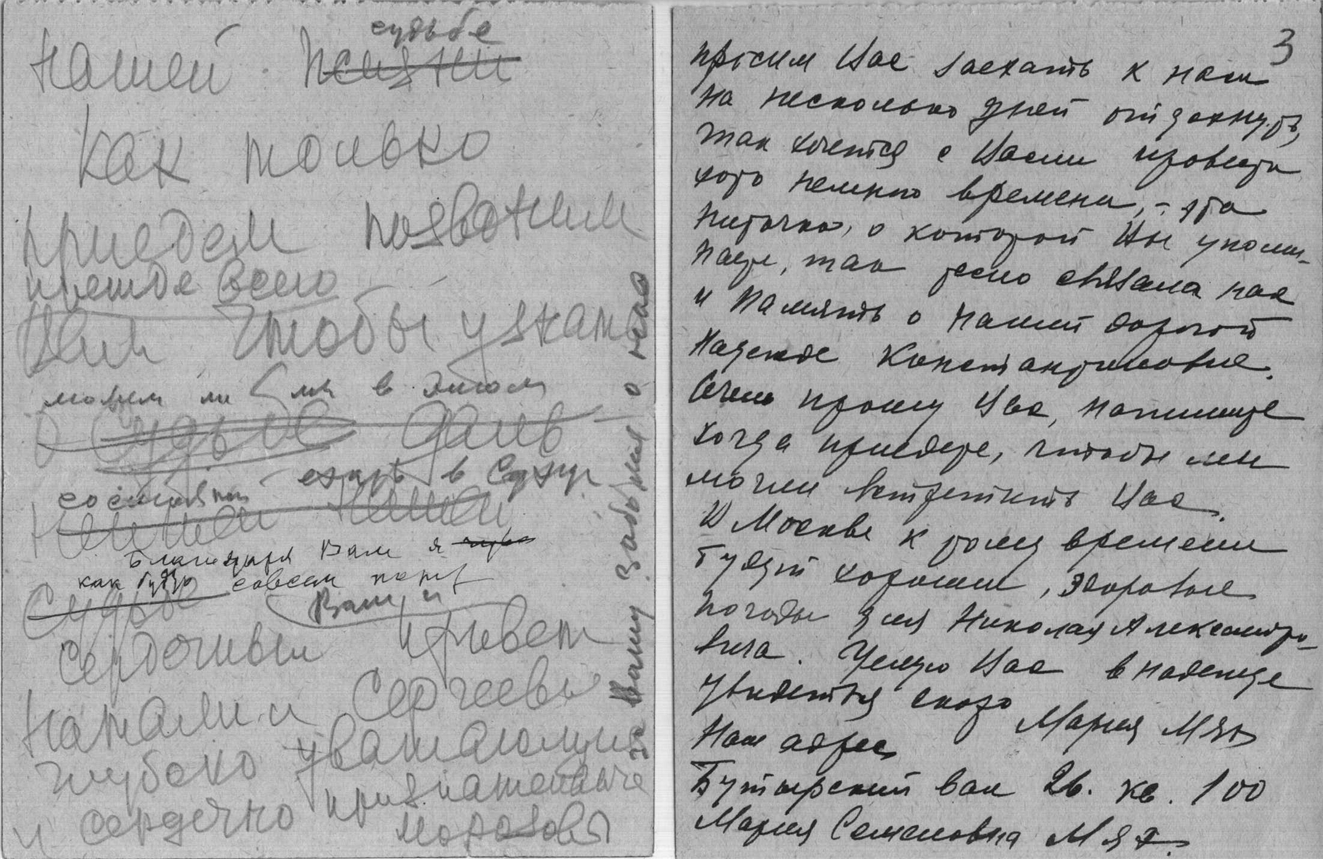 судьбе
нашей жизни
Как только
приедем позвоним
прежде всего
Вам чтобы узнать
можем ли мы в этом
О судьбе
ехать в
состоянии
Благодаря Вам я
как будто совсем
Судьбе
Вам и
сердечный привет
Наталии Сергеевы
глубоко уважающие
и сердечно признательные
Морозовы
за Вашу заботу о нас
3
просим Вас заехать к нам
на несколько дней отдохнуть,
так хочется с Вами провести
хоть немного времени, – эта
ниточка, о которой Вы упоми-
наете, так тесно связала нас
и память о нашей дорогой
Надежде Константиновне.
Очень прошу Вас, напишите
когда приедете, чтобы мы
могли встретить Вас.
В Москве к тому времени
будут хорошие, здоровые
погоды для Николая Александро-
вича. Целую Вас в надежде
увидеться скоро
Мария
Наш адрес
Бутырский вал 26. кв. 100
Мария Семеновна